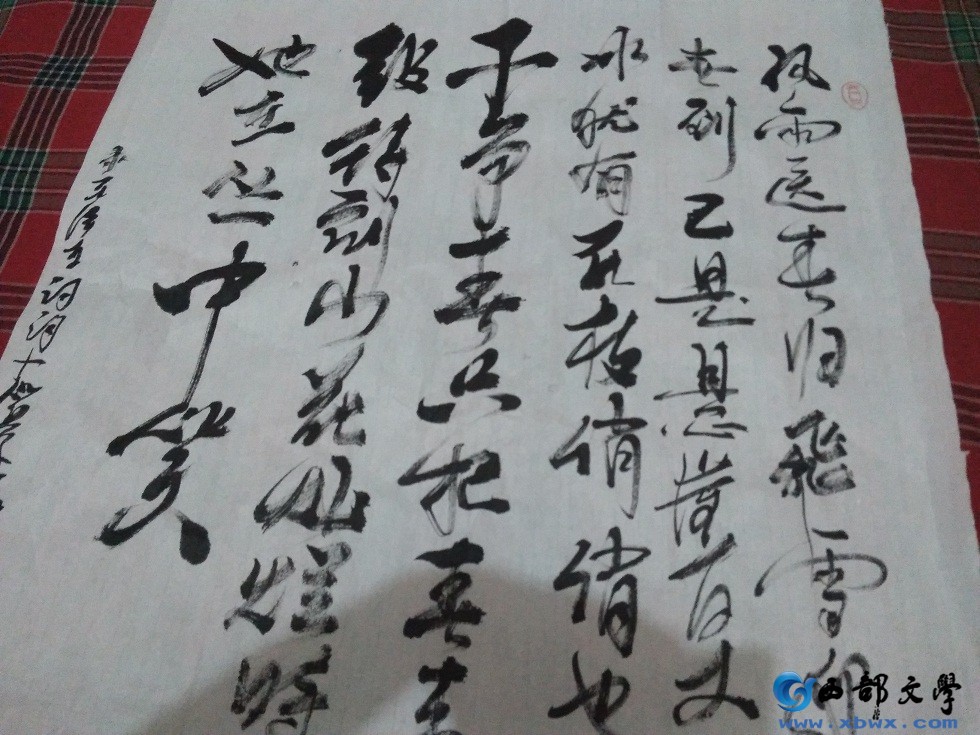 风雨送春归飞雪迎
春到已是悬崖百丈
冰犹有花枝俏俏也
不争春只把春来
报待到山花烂漫时
她在丛中笑
诗词卜算子
西部文學
www.xbwx.com